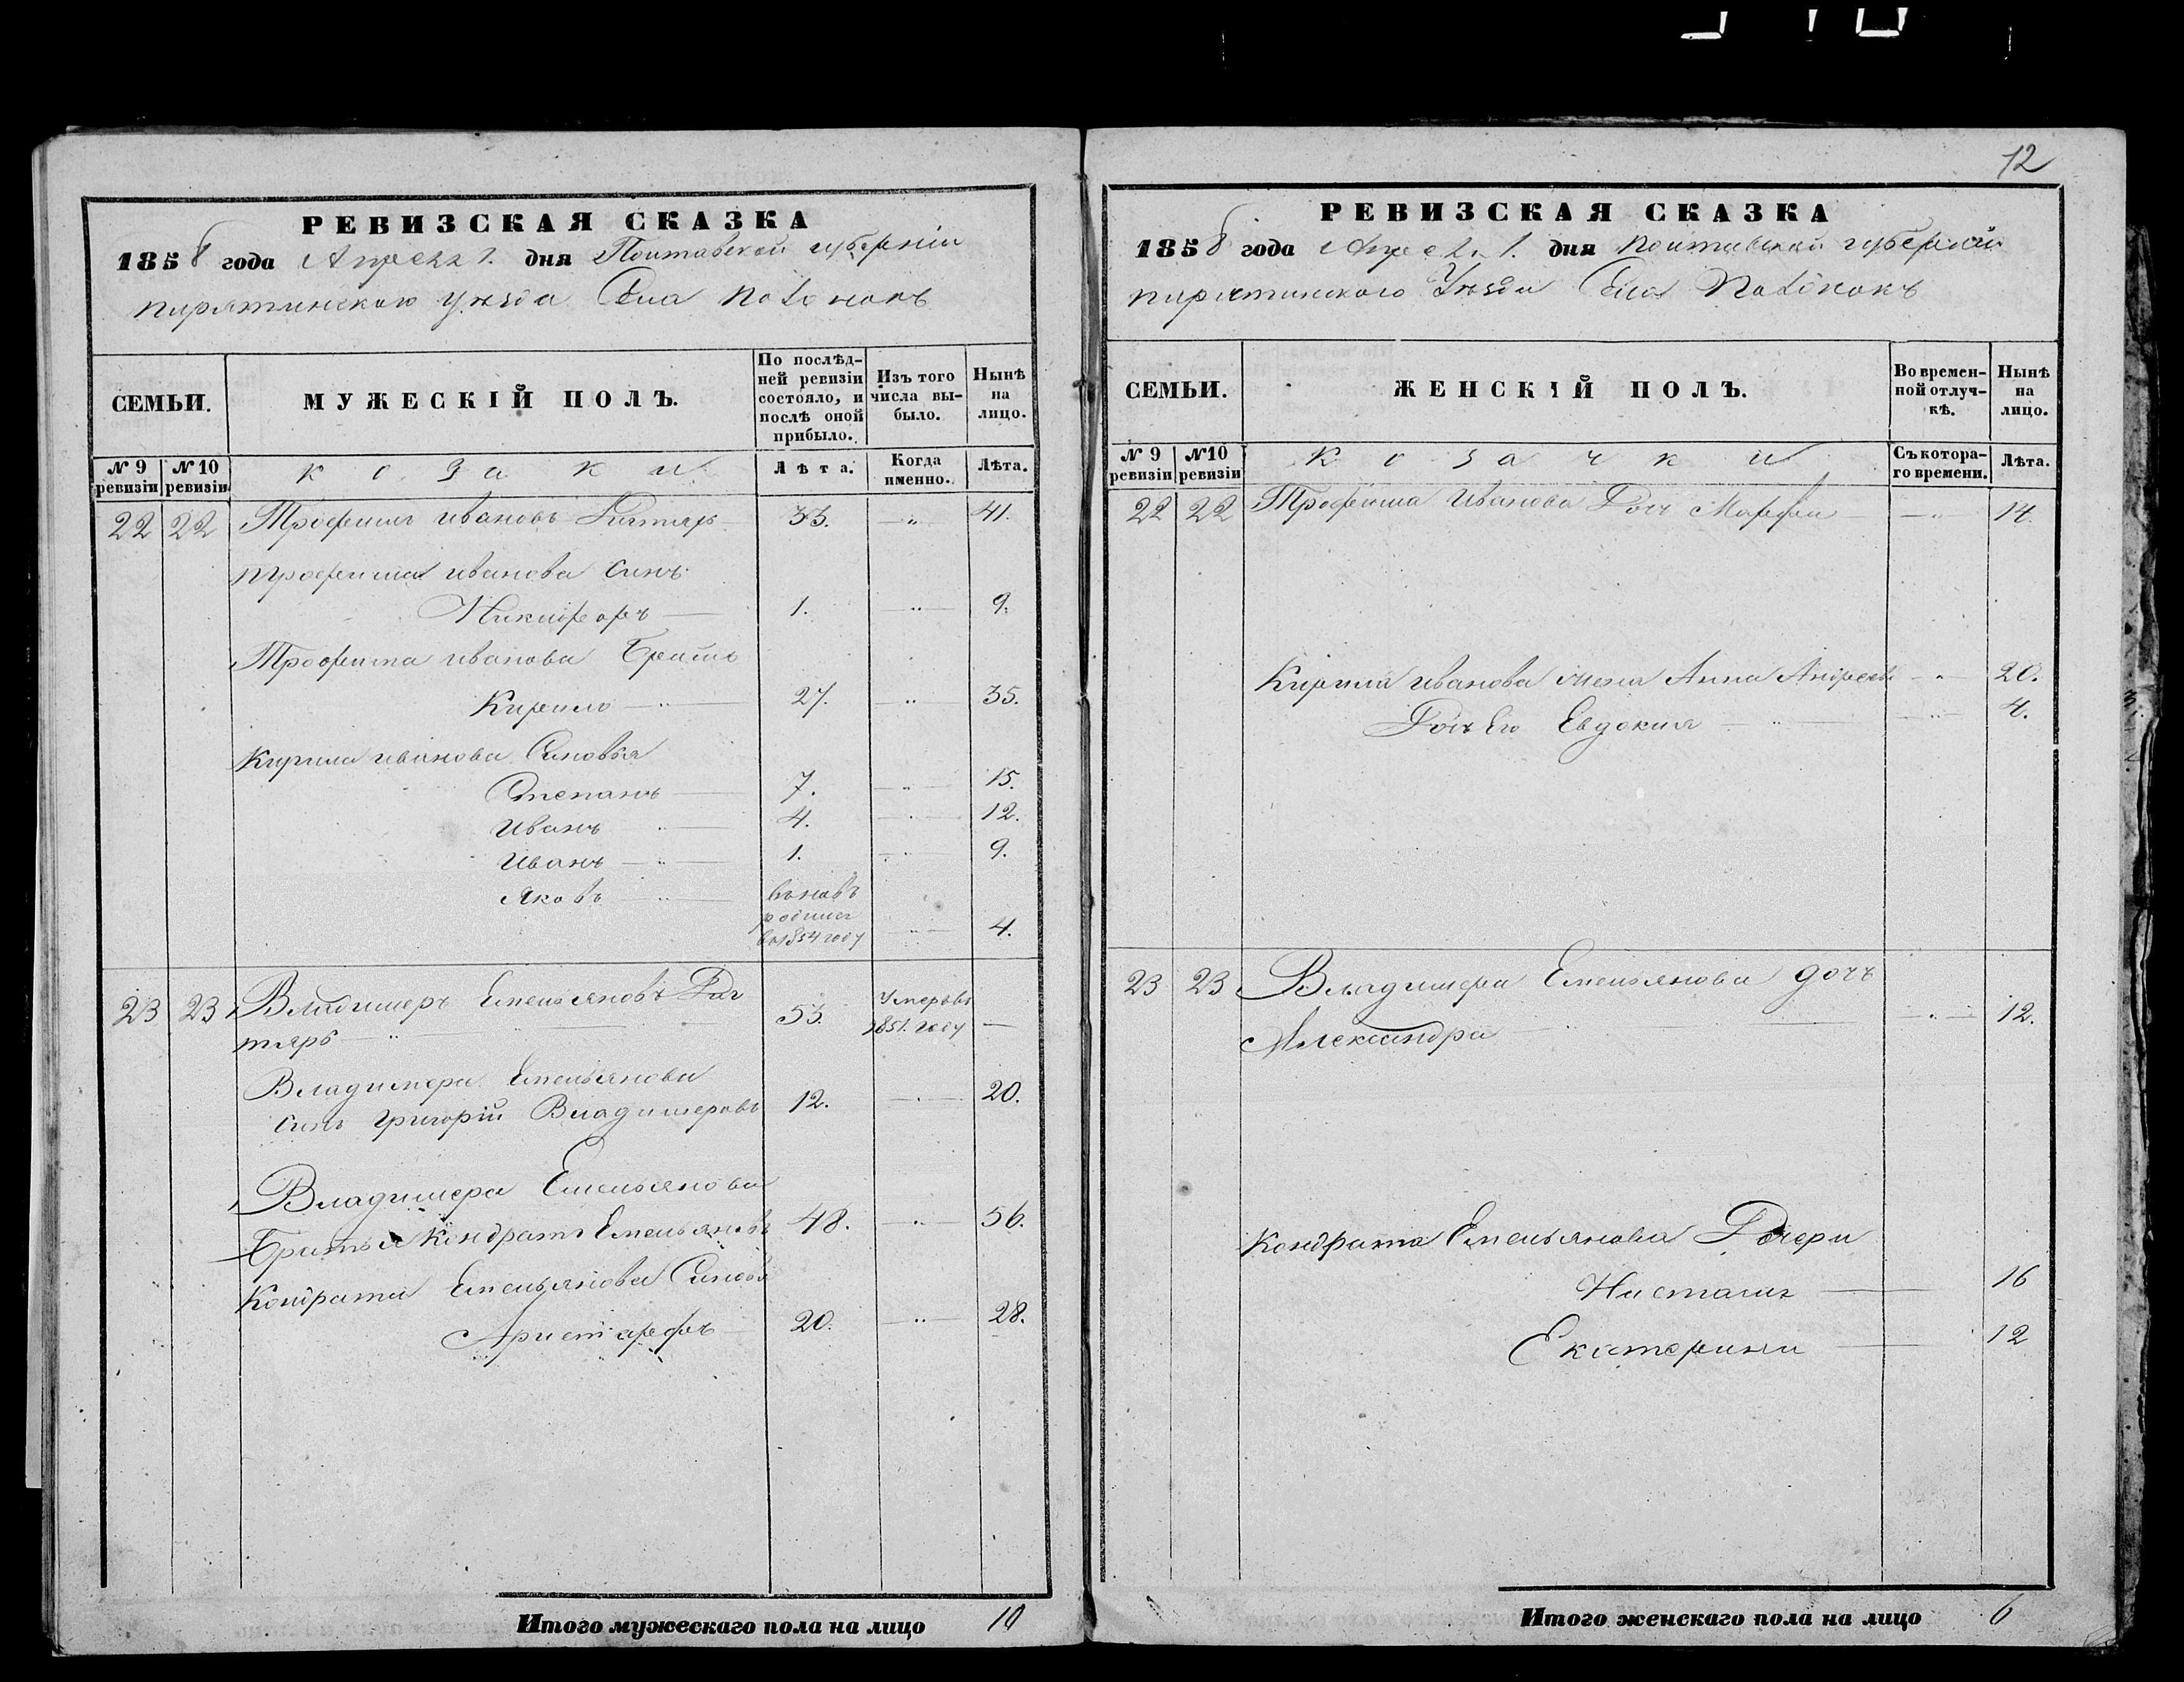 12
РЕВИЗСКАЯ СКАЗКА
1858 года Апреля 1. дня Полтавской губерніи
пирятинского уезда Села
СЕМЬИ.
МУЖЕСКІЙ ПОЛЪ.
По послѣд-
ней ревизіи
состояло, и
послѣ оной
прибыло.
Изъ того
числа вы-
было.
Нынѣ
на
лицо.
№ 9
ревизіи
№ 10
ревизіи
козаки
Лѣта.
Когда
именно.
Лѣта.
22 22 Трофимъ Ивановъ 33. — 41.
Трофима Иванова синъ
Никифоръ — 1. — 9.
Трофима Иванова Братъ
Кирило — 27. — 35.
Кирила Иванова Синовья
Степанъ — 7. — 15.
Иванъ — 4. — 12.
Иванъ — 1. — 9.
Яковъ — вновъ
родился
в 1854 году — 4.
23 23 Владимеръ Емельяновъ Дег 53. Умеръ в
тярь — 1851. году —
Владимера Емельянова
синъ Григорій Владимеровъ 12. — 20.
Владимера Емельянова
Братья Кондратъ Емельяновъ 48. — 56.
Кондрата Емельянова Синовья
Аристархъ 20. — 28.
Итого мужескаго пола на лицо 10
РЕВИЗСКАЯ СКАЗКА
1858 года Апреля 1. дня Полтавской губерніи
пирятинского Уезда Села
СЕМЬИ.
ЖЕНСКІЙ ПОЛЪ.
Во времен-
ной отлуч-
кѣ.
Нынѣ
на
лицо.
№ 9
ревизіи
№ 10
ревизіи
козачки
Съ котора-
го времени.
Лѣта.
22 22 Трофима Иванова Доч Марфа — 14.
Кирила Иванова жена Анна Андреева — 20.
Доч Его Евдокия — 4.
23 23 Владимера Емельянова дочъ
Александра — 12.
Кондрата Емельянова Дочери
Настасия — 16
Екатерина — 12
Итого женскаго пола на лицо 6